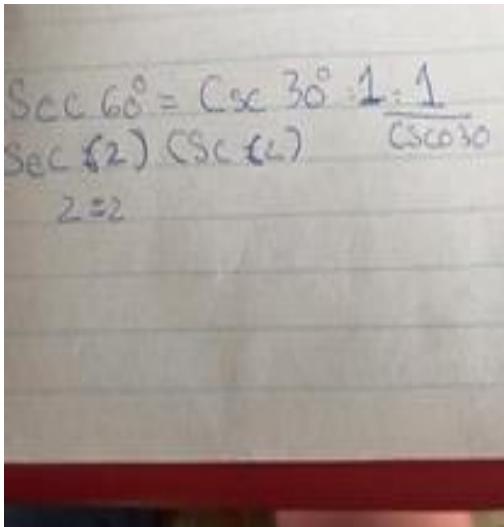 Sec 60° = Csc 30° : 1 : 1
CSC030
Sec (2) CSC (2)
2=2